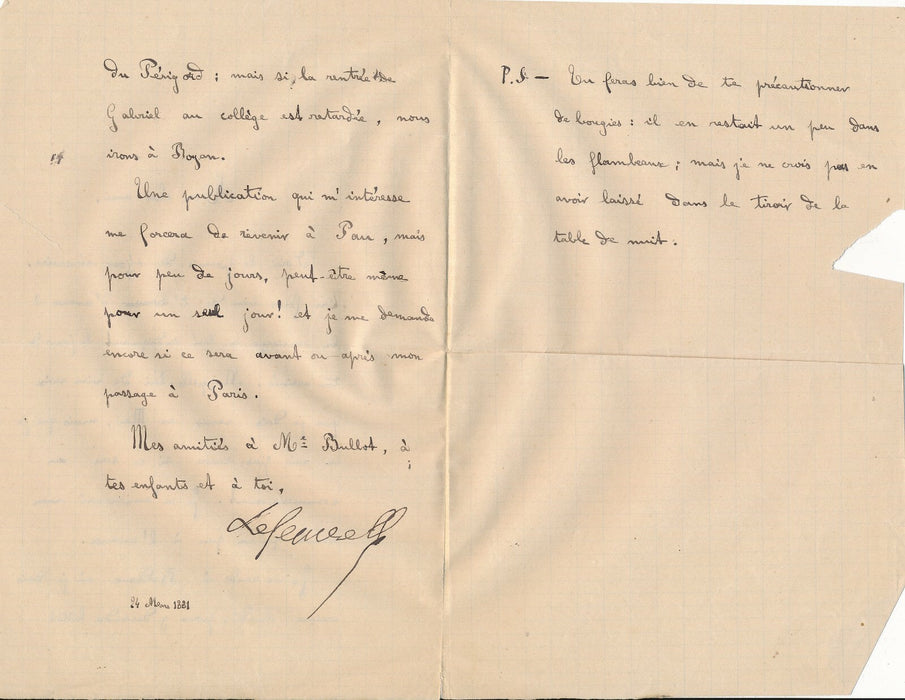 du Périgord ; mais si la rentrée de
Gabriel au collège est retardée, nous
irons à Royan.
Une publication qui m'intéresse
me forcera de revenir à Pau, mais
pour peu de jours, peut-être même
pour un seul jour ! et je me demande
encore si ce sera avant ou après mon
passage à Paris.
Mes amitiés à Mr Bullot, à
tes enfants et à toi,
24 1881
P.S — Tu feras bien de te précautionner
de bougies : il en restait un peu dans
les flambeaux ; mais je ne crois pas en
avoir laissé dans le tiroir de la
table de nuit.